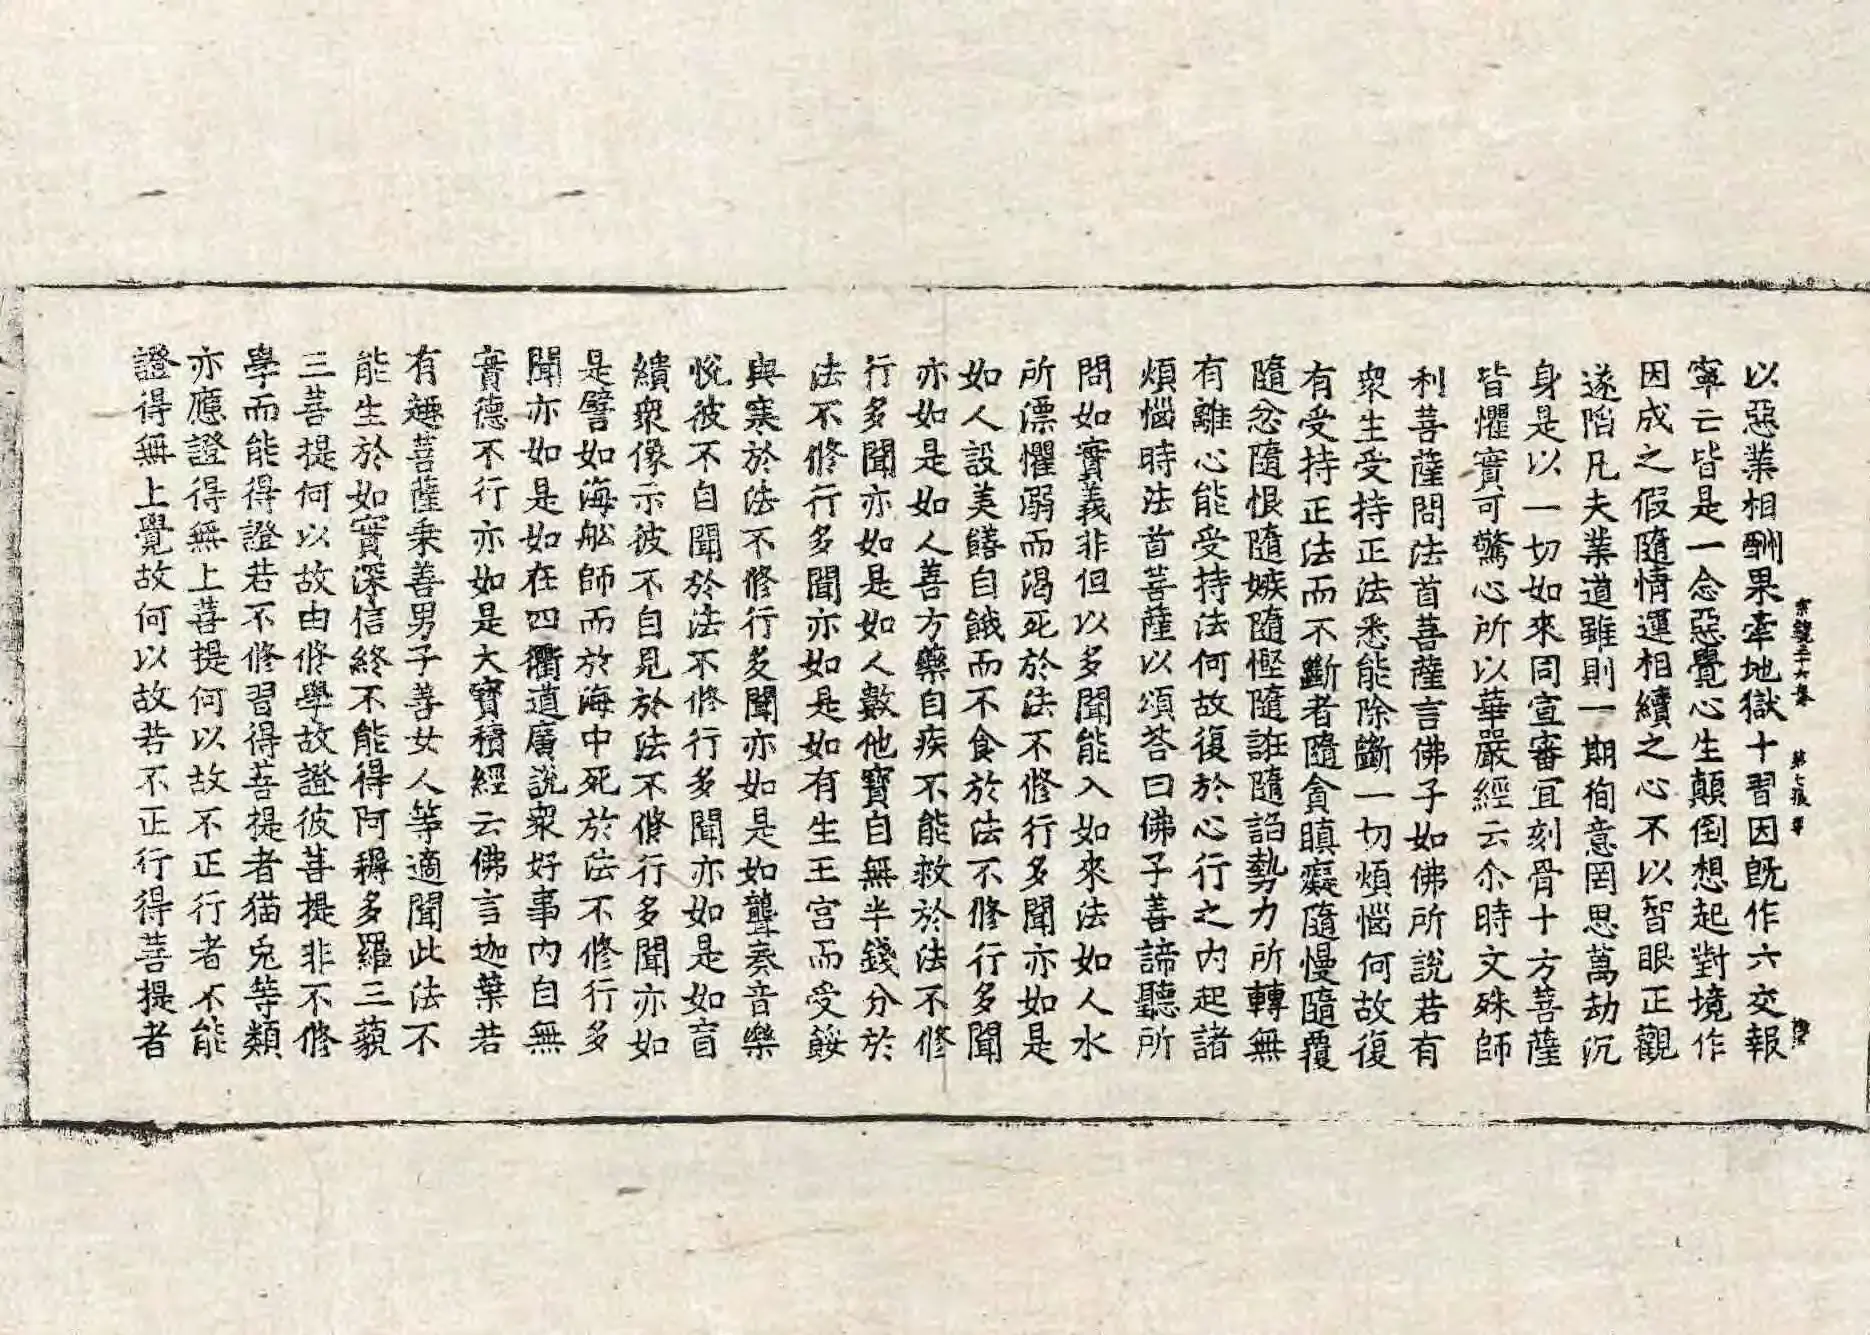 以惡業相酬果牽地獄十習因旣作六交報
寧亡皆是一念惡覺心生顛倒想起對境作
因成之假隨情運相續之心不以智眼正觀
遂陷凡夫業道雖則一期徇意罔思萬劫沉
身是以一切如來同宣審宜刻骨十方菩薩
皆懼實可驚心所以華嚴經云尒時文殊師
利菩薩問法首菩薩言佛子如佛所說若有
衆生受持正法悉能除斷一切煩惱何故復
有受持正法而不斷者隨貪瞋癡隨慢隨覆
隨忿隨恨隨嫉隨慳隨誑隨諂勢力所轉無
有離心能受持法何故復於心行之內起諸
煩惱時法首菩薩以頌荅曰佛子善諦聽所
問如實義非但以多聞能入如來法如人水
所漂懼溺而渴死於法不修行多聞亦如是
如人設美饍自餓而不食於法不修行多聞
亦如是如人善方藥自疾不能救於法不修
行多聞亦如是如人數他寶自無半錢分於
法不修行多聞亦如是如有生王宮而受餒
與寒於法不修行多聞亦如是如聾奏音樂
悅彼不自聞於法不修行多聞亦如是如盲
繢衆像示彼不自見於法不修行多聞亦如
是譬如海舩師而於海中死於法不修行多
聞亦如是如在四衢道廣說衆好事內自無
實德不行亦如是大寶積經云佛言迦葉若
有趣菩薩乗善男子善女人等適聞此法不
能生於如實深信終不能得阿耨多羅三藐
三菩提何以故由修學故證彼菩提非不修
學而能得證若不修習得菩提者猫兎等類
亦應證得無上菩提何以故不正行者不能
證得無上覺故何以故若不正行得菩提者